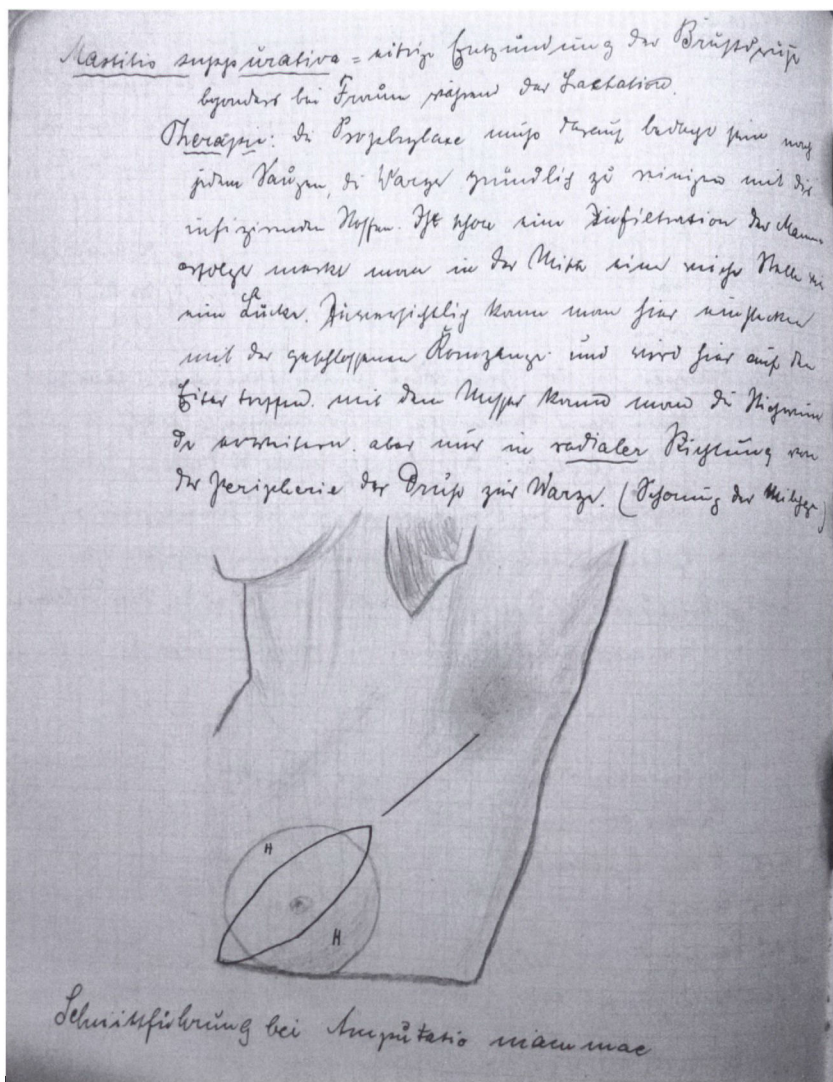 Mastitis suppurativa = eitrige Entzündung der Brustdrüse
besonders bei Frauen während der Lactation.
Therapie: die Prophylaxe muss darauf bedacht sein nach
jedem Saugen, die Warze gründlich zu reinigen mit des
infizirenden Stoffen. Ist schon eine Infiltration der Mamma
erfolgt merkt man in der Mitte eine weiche Stelle wie
eine Lücke. Zuversichtlich kann man hier einstechen
mit der geschlossenen Kornzange und wird hier auf den
Eiter treffen. mit dem Messer kann man die Stichwun
de erweitern. aber nur in radialer Richtung von
der Peripherie der Drüse zur Warze. (Schonung der Milchgge)
H
H
Schnittführung bei Amputatio mammae